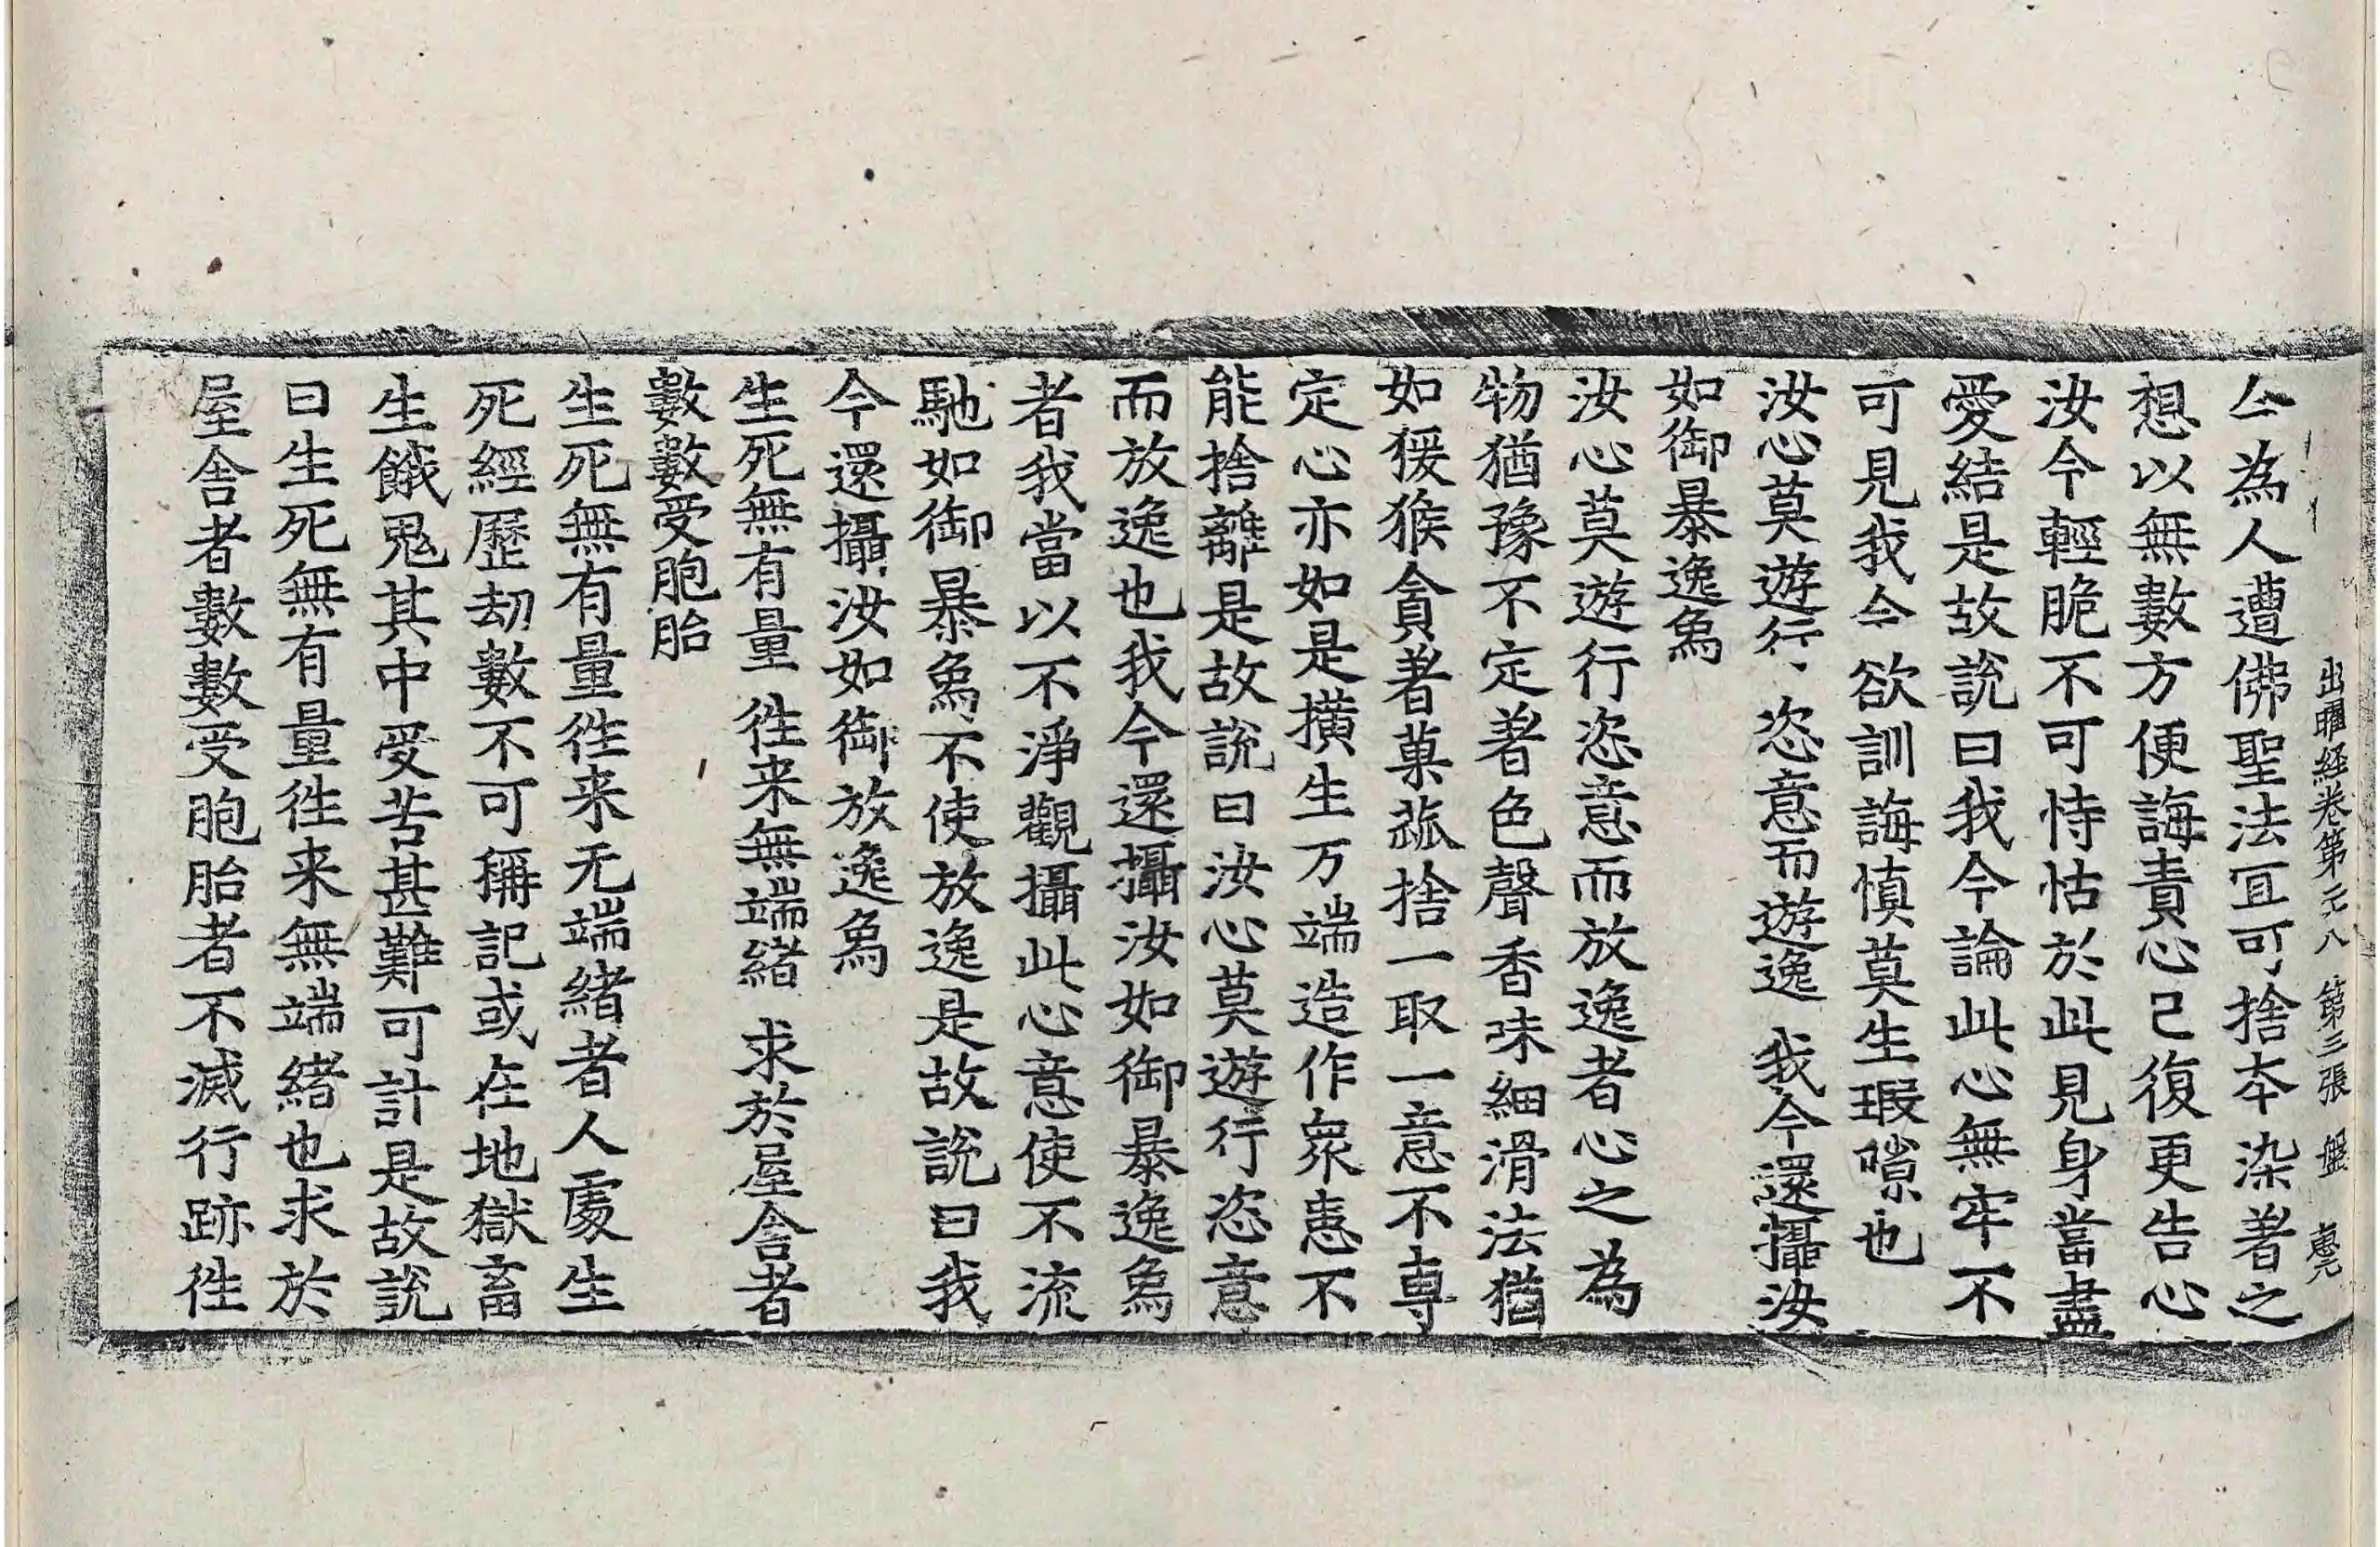 出曜経卷第二八 第三張 盤 惠元
今為人遭佛聖法冝可捨夲染著之
想以無數方便誨責心已復更告心
汝今輕脆不可恃怙於此見身當盡
愛結是故說曰我今論此心無牢不
可見我今欲訓誨慎莫生瑕隙也
汝心莫遊行 恣意而遊逸 我今還攝汝
如御暴逸象
汝心莫遊行恣意而放逸者心之為
物猶豫不定著色聲香味細滑法猶
如猨猴貪著菓蓏捨一取一意不專
定心亦如是撗生万端造作衆恚不
能捨離是故說曰汝心莫遊行恣意
而放逸也我今還攝汝如御暴逸象
者我當以不淨觀攝此心意使不流
馳如御暴象不使放逸是故說曰我
今還攝汝如御放逸象
生死無有量 徃来無端緒 求於屋舍者
數數受胞胎
生死無有量徃来无端緒者人處生
死經歷劫數不可稱記或在地獄畜
生餓鬼其中受苦甚難可計是故說
曰生死無有量徃来無端緒也求於
屋舍者數數受胞胎者不滅行跡徃